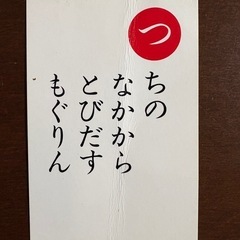 つ
ちの
なかから
とびだす
もぐりん